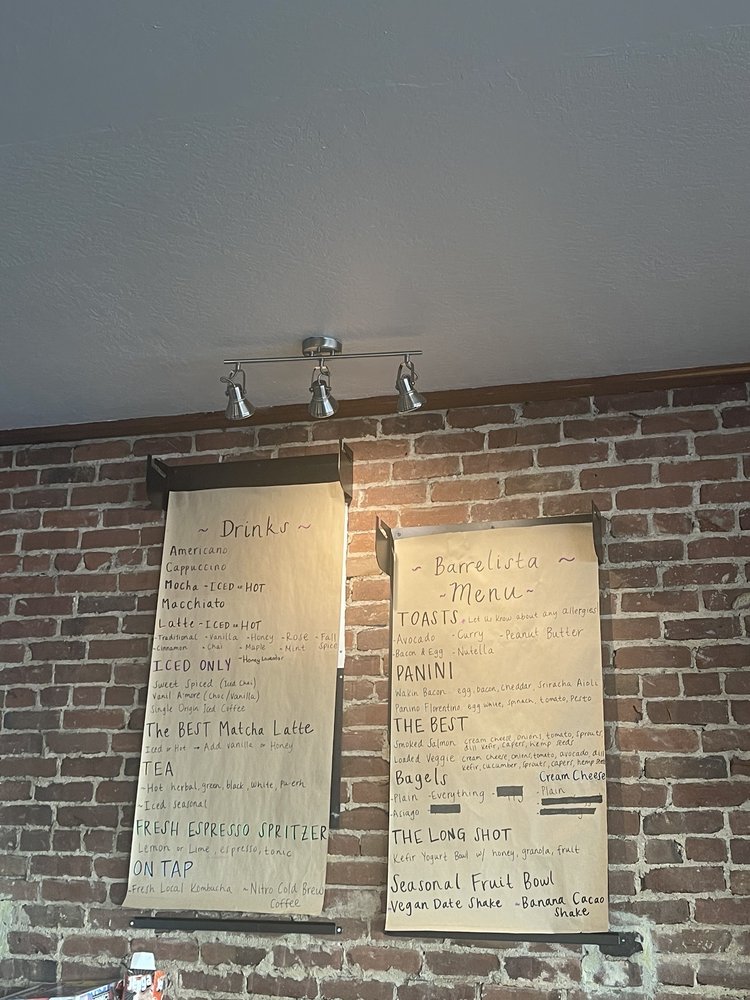 ~ Drinks ~
Americano
Cappuccino
Mocha - ICED or HOT
Macchiato
Latte - ICED or HOT
-Traditional -Vanilla -Honey -Rose -Fall Spice
-Cinnamon -Chai -Maple -Mint
-Honey Lavender
ICED ONLY
Sweet Spiced (Iced Chai)
Vanil A'more (Choc/Vanilla)
Single Origin Iced Coffee
The BEST Matcha Latte
Iced or Hot → Add vanilla or Honey
TEA
~Hot herbal, green, black, white, Pu-erh
~Iced seasonal
FRESH ESPRESSO SPRITZER
Lemon or Lime, espresso, tonic
ON TAP
-Fresh Local Kombucha ~Nitro Cold Brew
Coffee
~ Barrelista ~
-Menu-
TOASTS * Let us know about any allergies
-Avocado -Curry -Peanut Butter
-Bacon & Egg -Nutella
PANINI
Wakin Bacon egg, bacon, cheddar, Sriracha Aioli
Panino Florentino egg white, spinach, tomato, Pesto
THE BEST
Smoked Salmon cream cheese, onions, tomato, sprouts
dill kefir, capers, hemp seeds
Loaded Veggie cream cheese, onions, tomato, avocado, dill
kefir, cucumber, sprouts, capers, hemp seeds
Bagels
-Plain -Everything
-Asiago
Cream Cheese
-Plain
THE LONG SHOT
Kefir Yogurt Bowl w/ honey, granola, fruit
Seasonal Fruit Bowl
-Vegan Date Shake ~Banana Cacao
Shake